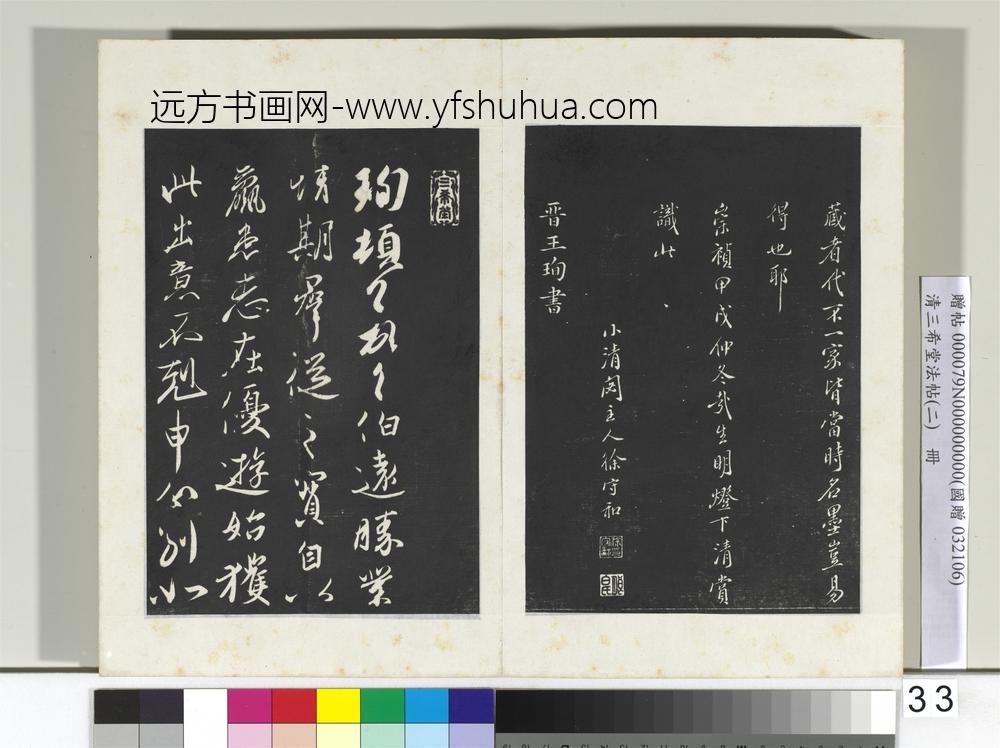 远方书画网-www.yfshuhua.com
藏者代不一家皆當時名墨豈易
得也耶
崇禎甲戌仲冬哉生明燈下清賞
識此
小清閟主人徐守和
晋王珣書
珣頓首頓首伯遠勝業
情期群從之寶自以
羸患志在優遊始獲
此出意不剋申分別如
贈帖 000079N000000000(國贈 032106)
清三希堂法帖(二) 冊
33